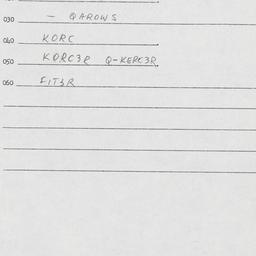 030 — QAROWS
040 KORC
050 KORC3R Q-KERC3R
060 FIT3R